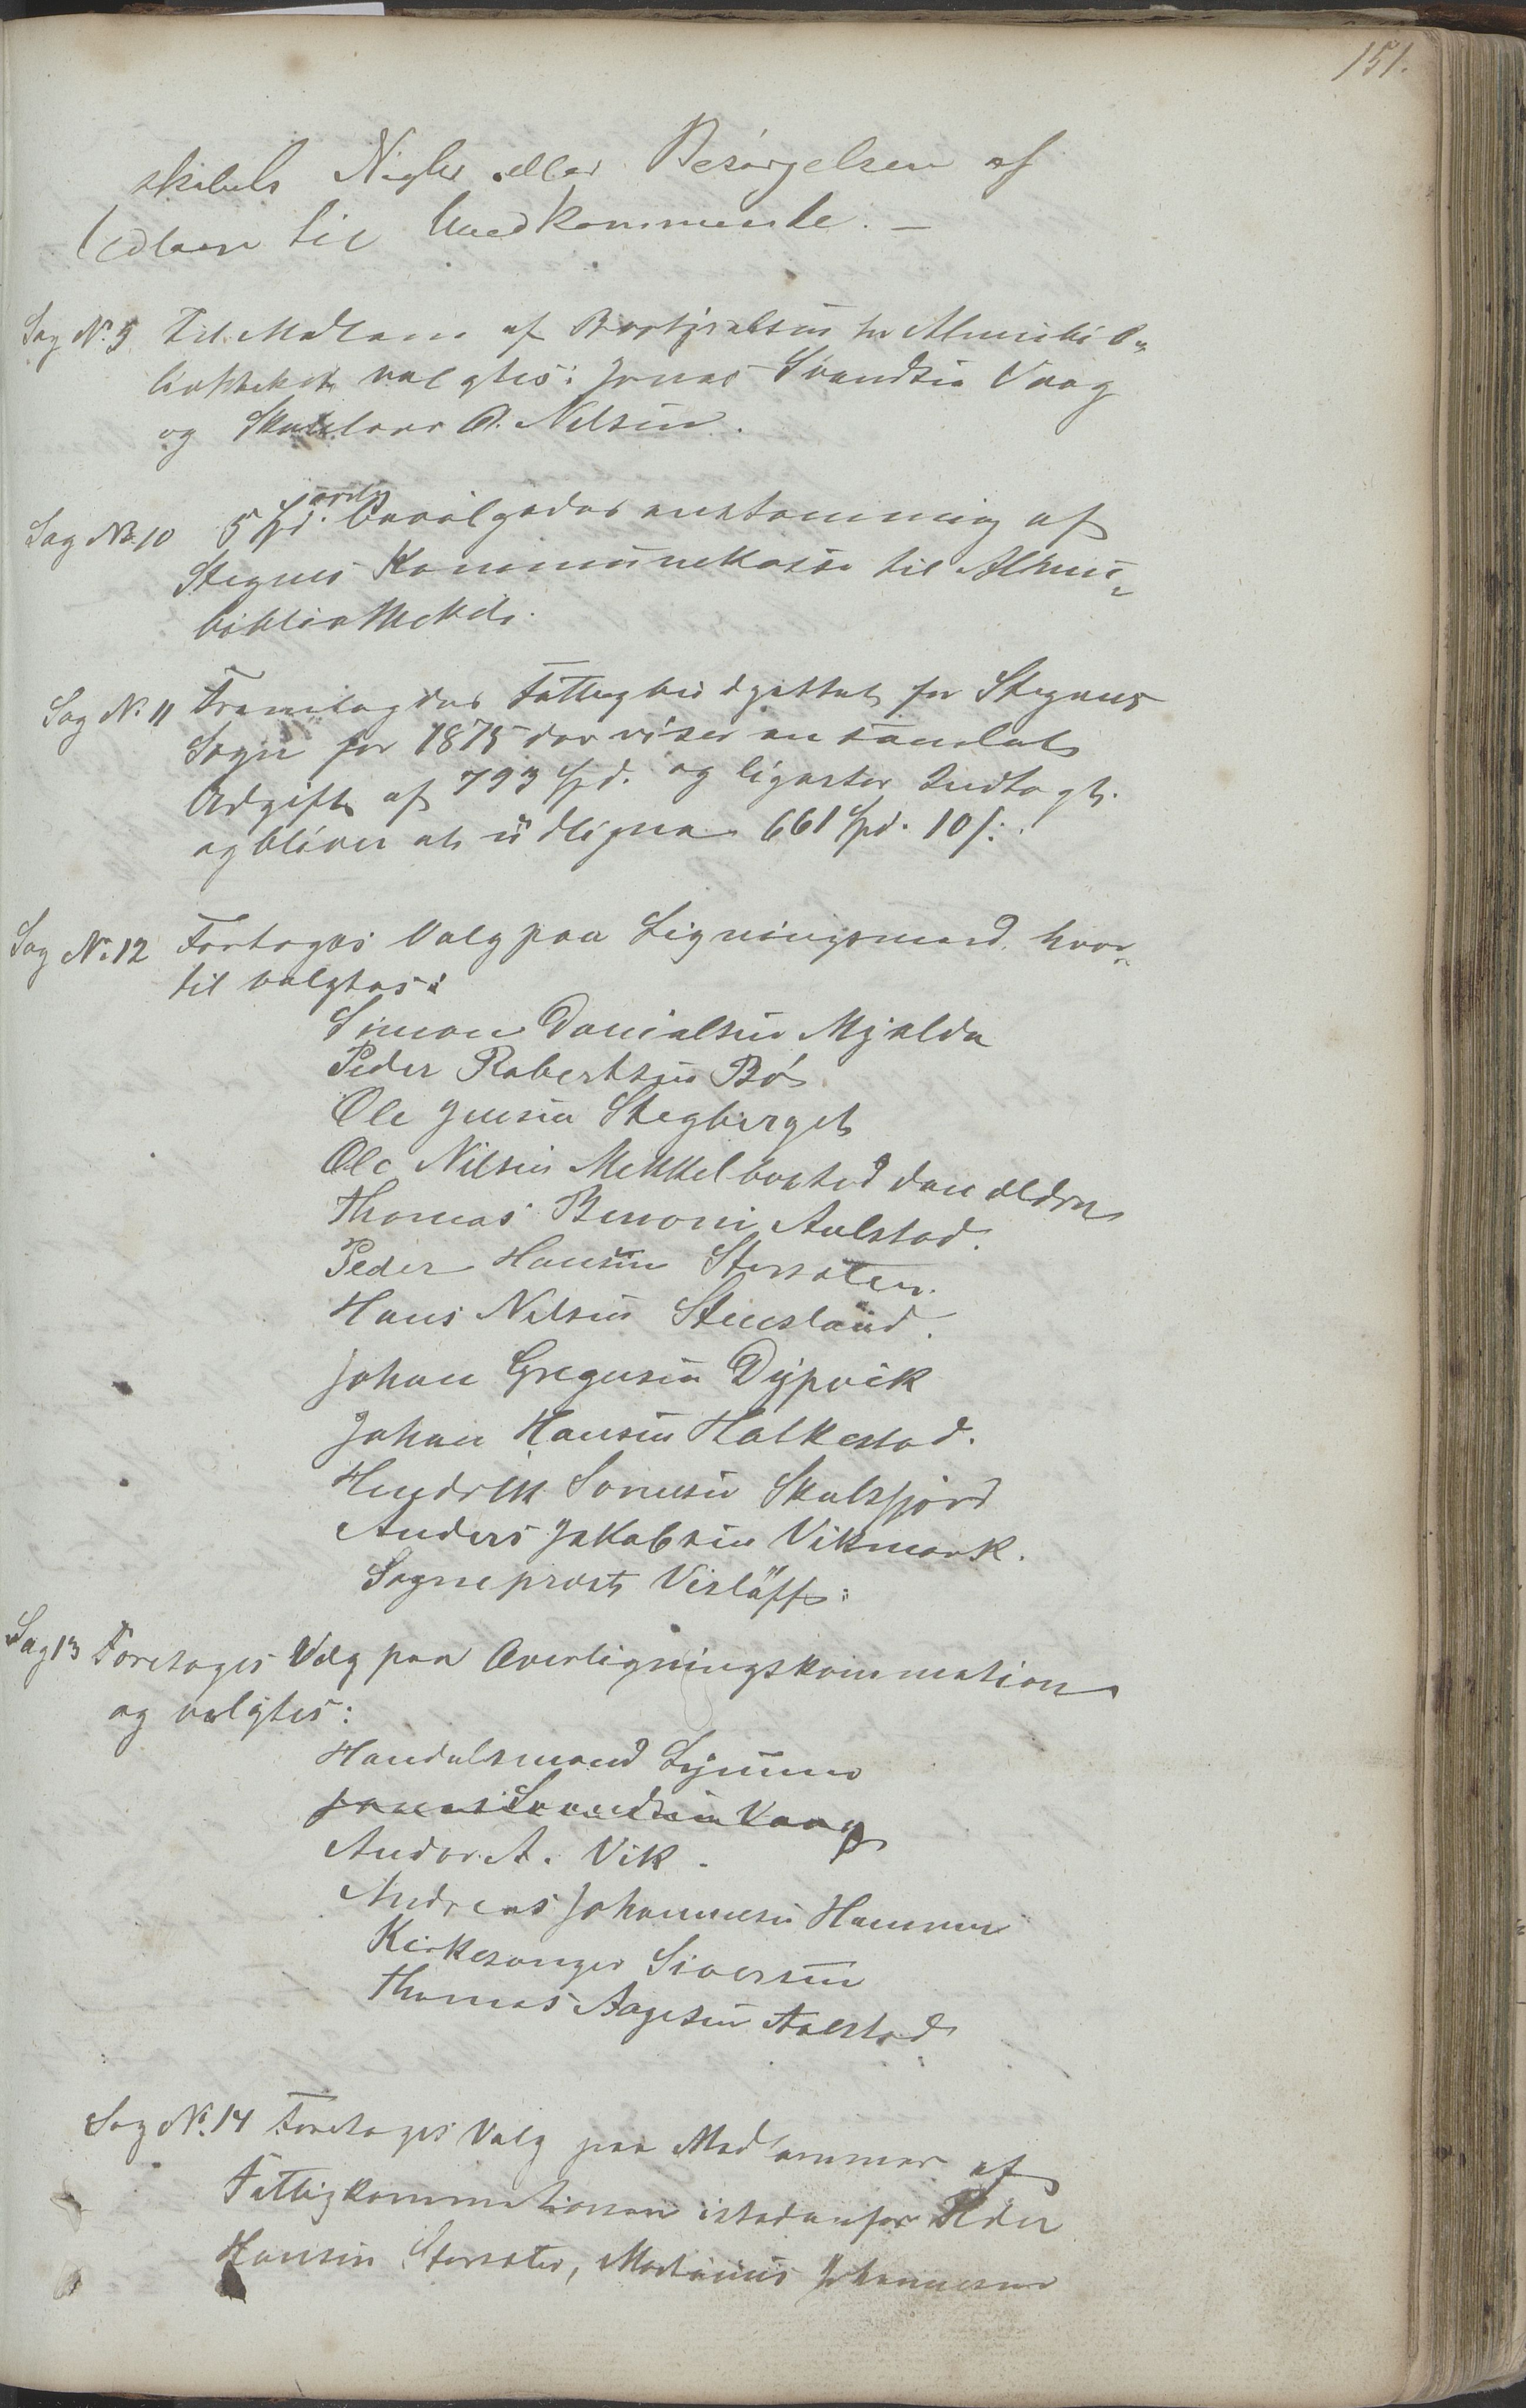 151.
skabets Nøgler eller Besørgelsen af
Udlaan til Uvedkommende. –
Sag No. 9 Til Medlem af Bestyrelsen for Almuebib-
liothekets valgtes: Jonas Svendsen Vaag
og Skolelærer O. Nilsen.
Sag No. 10 5 Spd. aarlig bevilgedes udstemning af
Stegens Kommunekasse til Almue-
bibliotheket.
Sag No. 11 Fremlagdes Fattigbudgettet for Stegens
Sogn for 1875 der viser en samlet
Udgift af 793 Spd. og ligestor Indtægt.
og bliver at udligne 661 Spd. 10 s.
Sag No. 12 Foretoges Valg paa Ligningsmænd, hvor-
til valgtes:
Simon Danielsen Mjelde
Peder Robertsen Bø
Ole Jensen Stegberget
Ole Nilsen Mekkelbostad den eldre
Thomas Benoni Aalstad.
Peder Hansen Storsæter.
Hans Nilsen Stensland.
Johan Gregusen Dypvik
Johan Hansen Halkestad.
Hendrik Sørensen Skulsfjord
Anders Jakobsen Vikmark.
Sogneprest Visløff:
Sag 13 Foretoges Valg paa Overligningskommission
og valgtes:
Handelsmand Lyum
Jonas Svendsen Vaag
Andor A. Vik.
Andreas Johannesen Hammer
Kirkesanger Siversen
Thomas Aagesen Aalstad
Sag No. 14 Foretoges Valg paa Medlemmer af
Fattigkommissionen istedenfor Peder
Hansen Storsæter, Martinus Johannesen